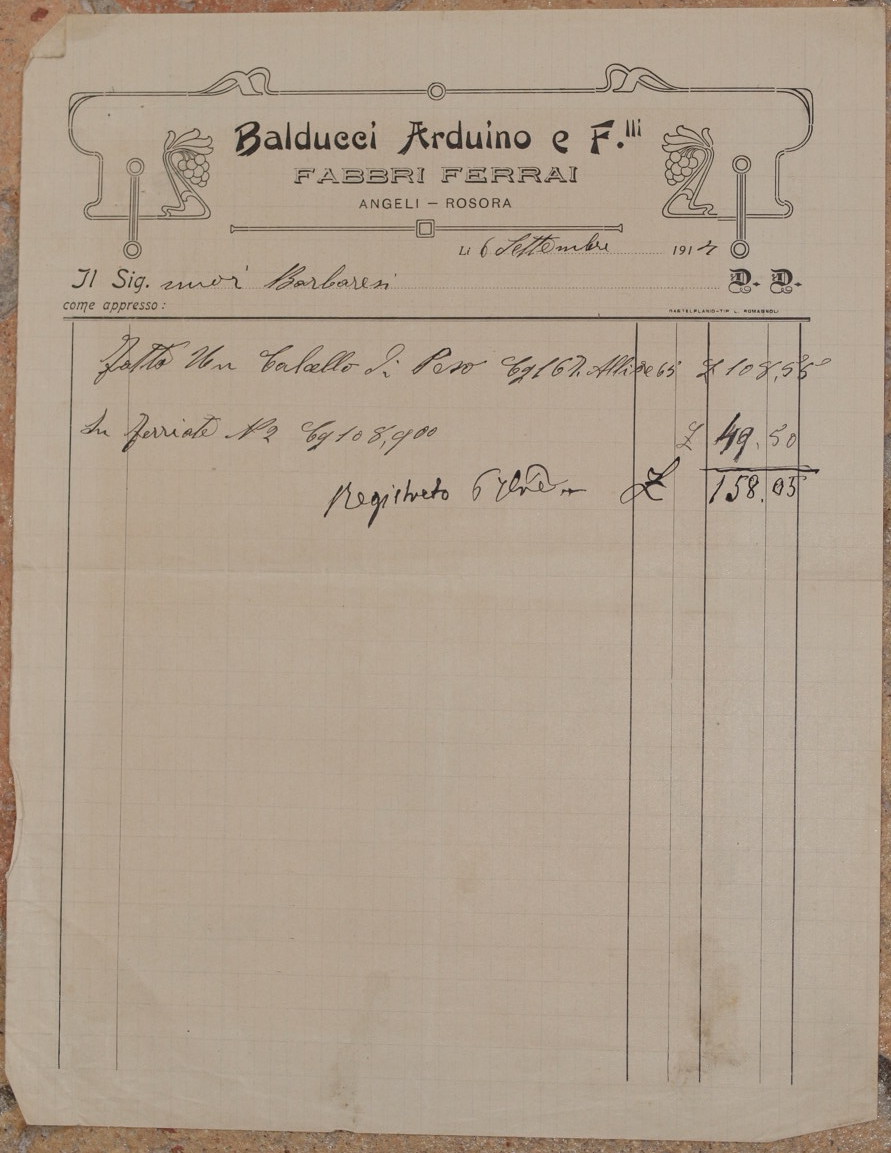 Balducci Arduino e F.lli
FABBRI FERRAI
ANGELI – ROSORA
Li 6 Settembre 191
Il Sig. Barbaresi D. D.
come appresso:
CASTELPLANIO-TIP. L. ROMAGNOLI
Fatto Un Calcello di Peso Cg 167. £ 108,55
In ferriate N 2 Cg 108,900 £ 49.50
Registreto £ 158.05